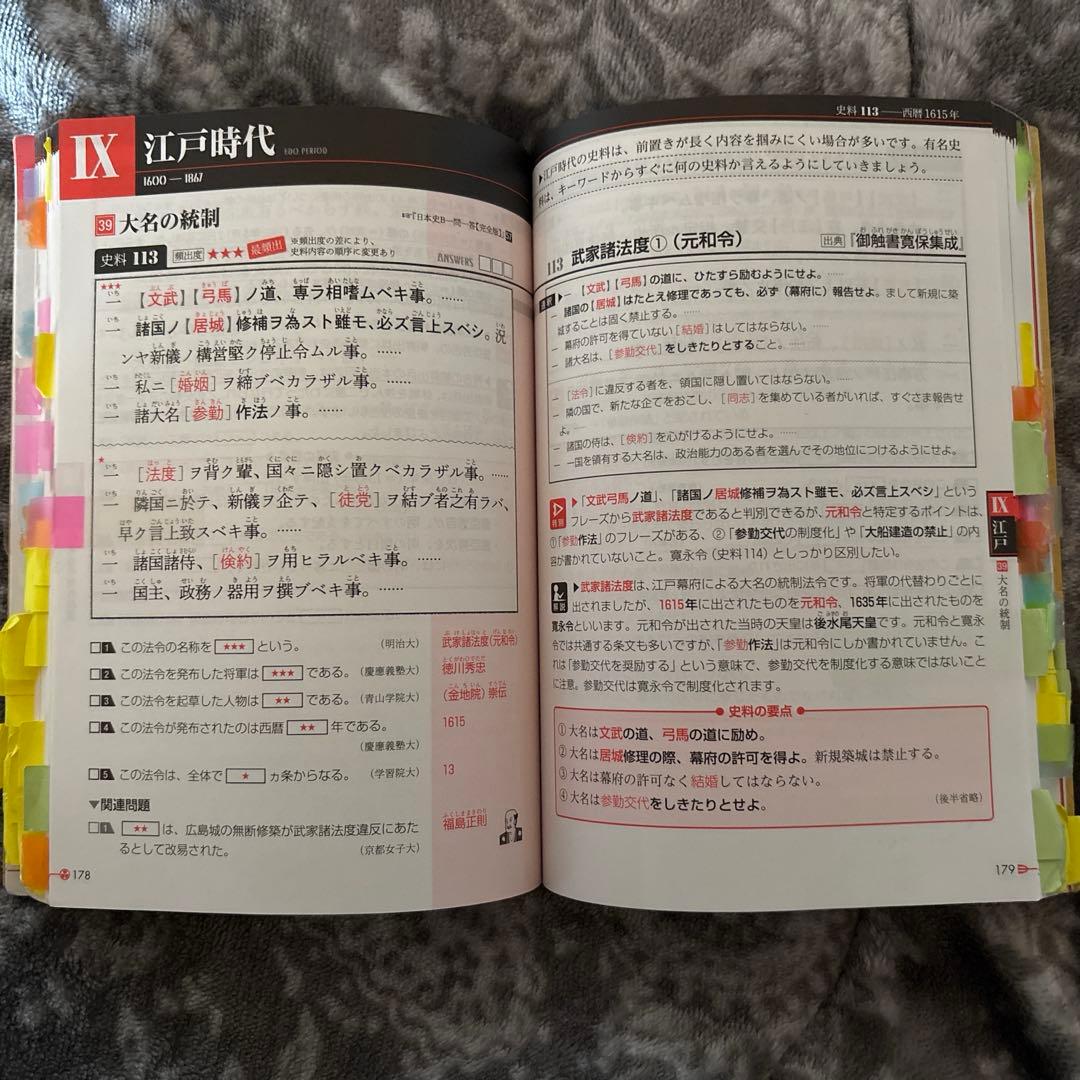 IX 江戸時代 EDO PERIOD
1600 — 1867
39 大名の統制
『日本史B一問一答【完全版】』57
史料 113 頻出度 ★★★ 最頻出
※頻出度の差により、
史料内容の順序に変更あり
ANSWERS
★★★
一 【文武】【弓馬】ノ道、専ラ相嗜ムベキ事。……
一 諸国ノ【居城】修補ヲ為スト雖モ、必ズ言上スベシ。況
ンヤ新儀ノ構営堅ク停止令ムル事。……
一 私ニ[婚姻]ヲ締ブベカラザル事。……
一 諸大名[参勤]作法ノ事。……
★
一 [法度]ヲ背ク輩、国々ニ隠シ置クベカラザル事。……
一 隣国ニ於テ、新儀ヲ企テ、[徒党]ヲ結ブ者之有ラバ、
早ク言上致スベキ事。……
一 諸国諸侍、[倹約]ヲ用ヒラルベキ事。……
一 国主、政務ノ器用ヲ撰ブベキ事。……
1 この法令の名称を ★★★ という。 (明治大) 武家諸法度(元和令)
2 この法令を発布した将軍は ★★★ である。 (慶應義塾大) 徳川秀忠
3 この法令を起草した人物は ★★ である。 (青山学院大) (金地院)崇伝
4 この法令が発布されたのは西暦 ★★ 年である。 1615
(慶應義塾大)
5 この法令は、全体で ★ ヵ条からなる。 (学習院大) 13
▼関連問題
1 ★★ は、広島城の無断修築が武家諸法度違反にあた 福島正則
るとして改易された。 (京都女子大)
178
史料 113 — 西暦 1615年
▶江戸時代の史料は、前置きが長く内容を掴みにくい場合が多いです。有名史
料は、キーワードからすぐに何の史料か言えるようにしていきましょう。
113 武家諸法度①(元和令) 出典 『御触書寛保集成』
▶一 【文武】【弓馬】の道に、ひたすら励むようにせよ。……
一 諸国の【居城】はたとえ修理であっても、必ず(幕府に)報告せよ。まして新規に築
城することは固く禁止する。……
一 幕府の許可を得ていない[結婚]はしてはならない。……
一 諸大名は、[参勤交代]をしきたりとすること。……
一 [法令]に違反する者を、領国に隠し置いてはならない。……
一 隣の国で、新たな企てをおこし、[同志]を集めている者がいれば、すぐさま報告せ
よ。……
一 諸国の侍は、[倹約]を心がけるようにせよ。……
一 一国を領有する大名は、政治能力のある者を選んでその地位につけるようにせよ。
判別 ▶「文武弓馬ノ道」、「諸国ノ居城修補ヲ為スト雖モ、必ズ言上スベシ」という
フレーズから武家諸法度であると判別できるが、元和令と特定するポイントは、
①「参勤作法」のフレーズがある、②「参勤交代の制度化」や「大船建造の禁止」の内
容が書かれていないこと。寛永令(史料114)としっかり区別したい。
解説 ▶武家諸法度は、江戸幕府による大名の統制法令です。将軍の代替わりごとに
出されましたが、1615年に出されたものを元和令、1635年に出されたものを
寛永令といいます。元和令が出された当時の天皇は後水尾天皇です。元和令と寛永
令では共通する条文も多いですが、「参勤作法」は元和令にしか書かれていません。こ
れは「参勤交代を奨励する」という意味で、参勤交代を制度化する意味ではないこと
に注意。参勤交代は寛永令で制度化されます。
史料の要点
①大名は文武の道、弓馬の道に励め。
②大名は居城修理の際、幕府の許可を得よ。新規築城は禁止する。
③大名は幕府の許可なく結婚してはならない。
④大名は参勤交代をしきたりとせよ。 (後半省略)
IX 江戸 39 大名の統制
179